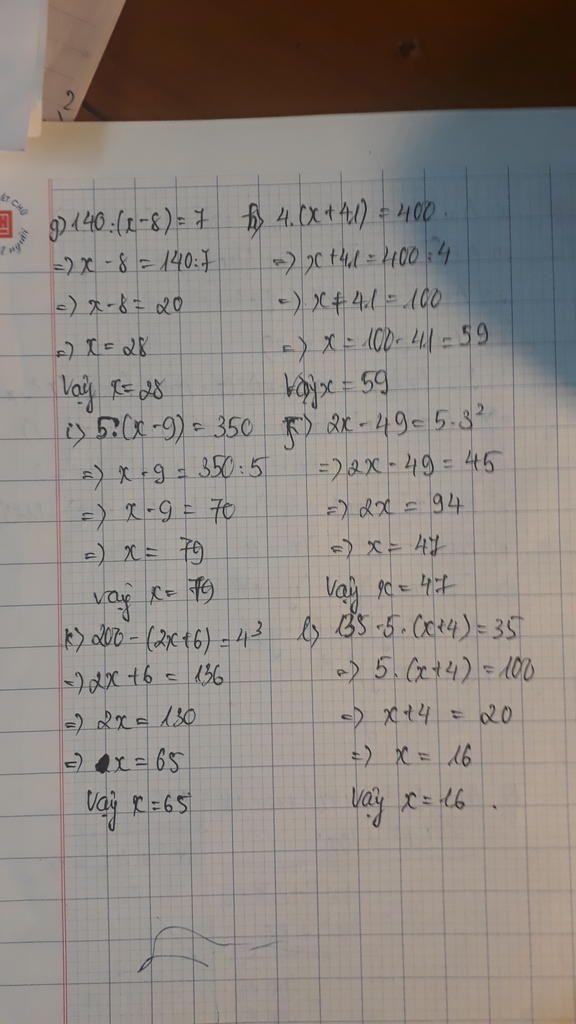 2
g) 140:(x-8) = 7
=> x - 8 = 140:7
=> x - 8 = 20
=> x = 28
Vậy x = 28
h) 4.(x + 41) = 400
=> x + 41 = 400 : 4
=> x + 41 = 100
=> x = 100 - 41 = 59
Vậy x = 59
i) 5.(x - 9) = 350
=> x - 9 = 350 : 5
=> x - 9 = 70
=> x = 79
Vậy x = 79
j) 2x - 49 = 5.3²
=> 2x - 49 = 45
=> 2x = 94
=> x = 47
Vậy x = 47
k) 200 - (2x + 6) = 4³
=> 2x + 6 = 136
=> 2x = 130
=> x = 65
Vậy x = 65
l) 135 - 5.(x+4) = 35
=> 5.(x+4) = 100
=> x + 4 = 20
=> x = 16
Vậy x = 16.